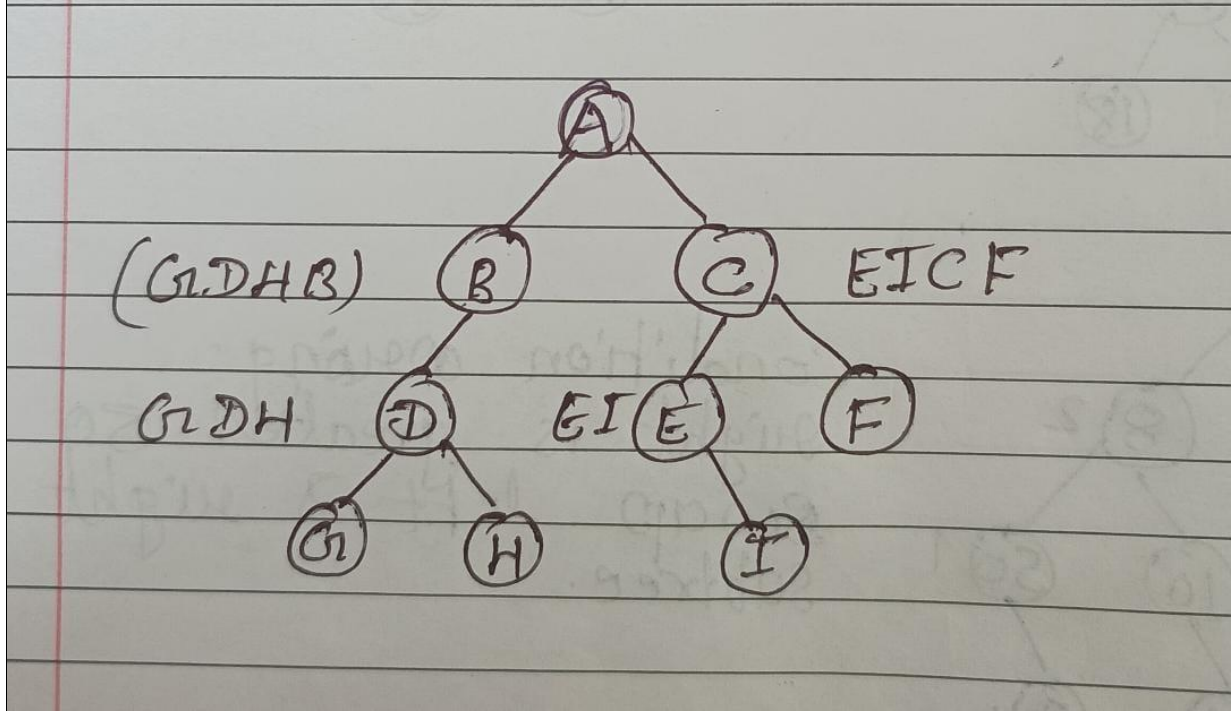 A
(GDHB) B C EICF
GDH D EI E F
G H I